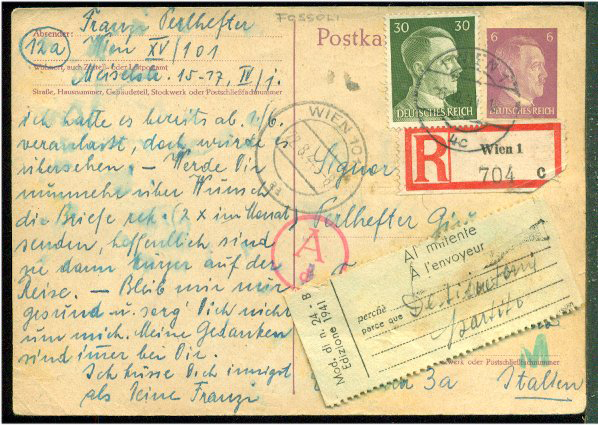 FOSSOLI
Absender:
Franzi Perlhefter
12a Wien XV/101
Wohnort, auch Zustell- oder Leitpostamt
Meiselstr. 15-17, IV/j.
Straße, Hausnummer, Gebäudeteil, Stockwerk oder Postschließfachnummer
Postka
30 30
DEUTSCHES REICH
6 6
DEUTSCHES REICH
WIEN 1
4c
WIEN 101
R
Wien 1
704 c
ich hatte es bereits ab 1./6.
veranlasst, doch wurde es
übersehen. – Werde Dir
nunmehr über Wunsch
die Briefe rek. (2 x im Monat)
senden, hoffentlich sind
sie dann kürzer auf der
Reise. – Bleib mir nur
gesund u. sorg' Dich nicht
um mich. Meine Gedanken
sind immer bei Dir.
Ich küsse Dich innigst
als Deine Franzi
Signor
Perlhefter
A
Al mittente
A l'envoyeur
perchè
parce que
Destinatario
partito
Mod. di n. 24-B
Edizione 1941
werk oder Postschließfachnummer
3a Italien